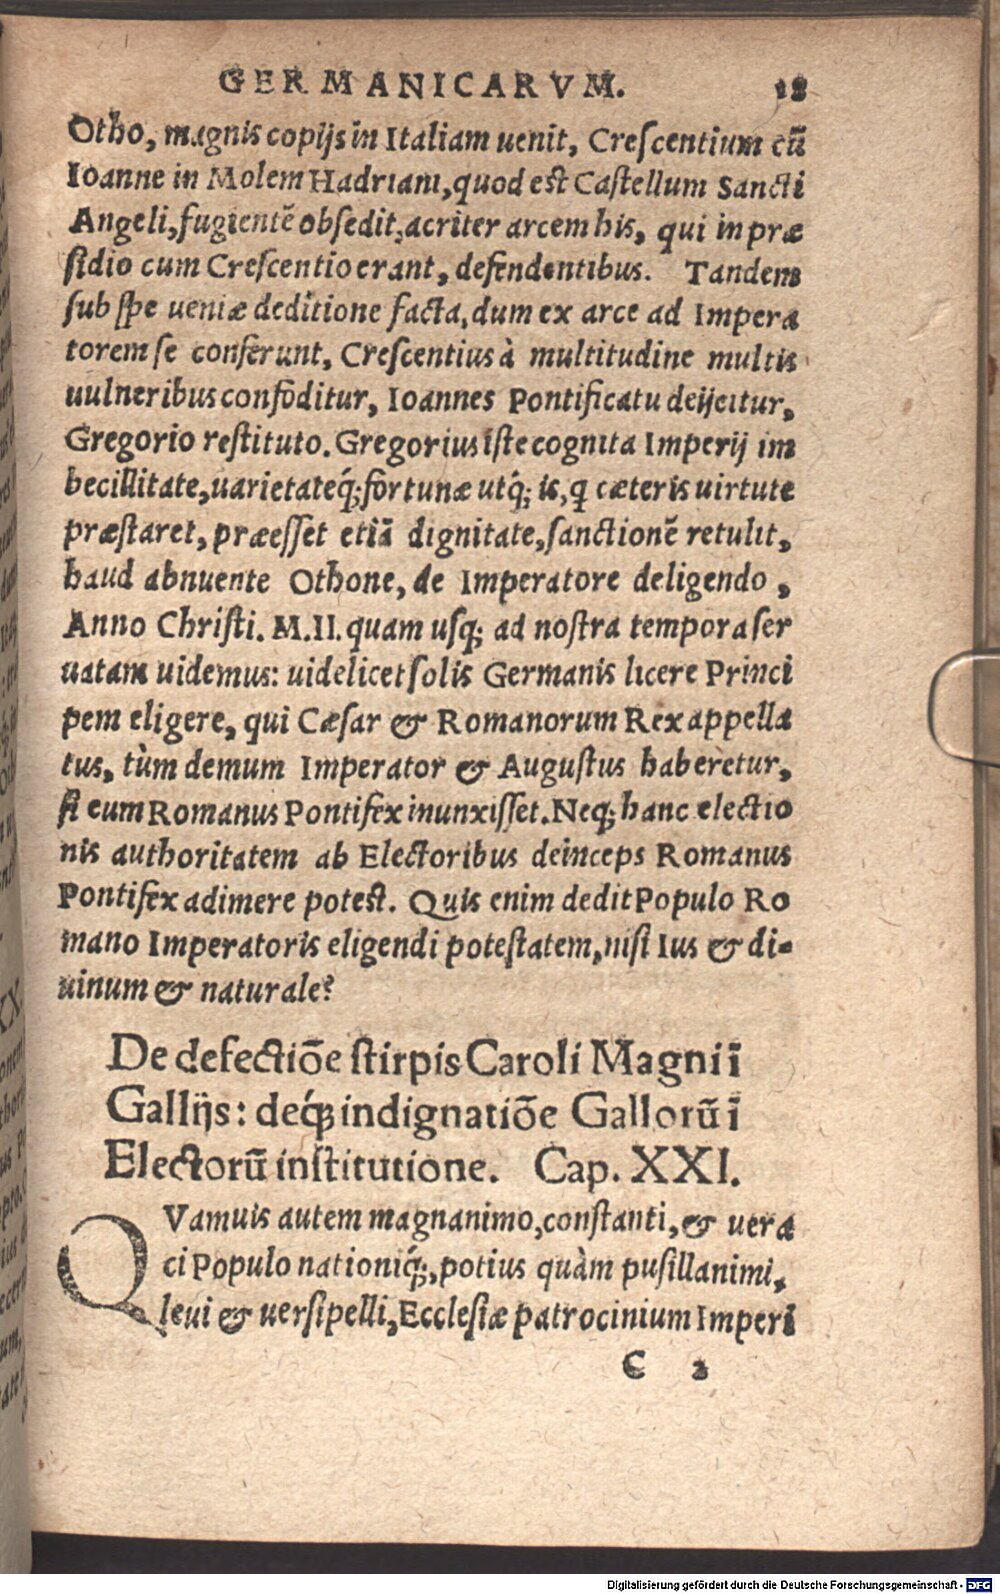 GERMANICARVM. 18
Otho, magnis copijs in Italiam uenit, Creſcentium cū
Ioanne in Molem Hadriani, quod est Caſtellum Sancti
Angeli, fugientē obſedit, acriter arcem his, qui in præ
ſidio cum Creſcentio erant, defendentibus. Tandem
ſub ſpe ueniæ deditione facta, dum ex arce ad Impera
torem ſe conferunt, Creſcentius à multitudine multis
uulneribus confoditur, Ioannes Pontificatu deijcitur,
Gregorio reſtituto. Gregorius iſte cognita Imperij im
becillitate, uarietateq́; fortunæ utq́; is, q cæteris uirtute
præſtaret, præeſſet etiā dignitate, ſanctionē retulit,
haud abnuente Othone, de Imperatore deligendo,
Anno Chriſti. M.II. quam uſq; ad noſtra tempora ſer
uatam uidemus: uidelicet ſolis Germanis licere Princi
pem eligere, qui Cæſar & Romanorum Rex appella
tus, tùm demum Imperator & Auguſtus haberetur,
ſi eum Romanus Pontifex inunxiſſet. Neq; hanc electio
nis authoritatem ab Electoribus deinceps Romanus
Pontifex adimere potest. Quis enim dedit Populo Ro
mano Imperatoris eligendi poteſtatem, niſi Ius & di-
uinum & naturale?
De defectiōe ſtirpis Caroli Magni ī
Gallijs: deq́; indignatiōe Gallorū ī
Electorū inſtitutione. Cap. XXI.
QVamuis autem magnanimo, conſtanti, & uera
ci Populo nationiq́;, potius quàm puſillanimi,
leui & uerſipelli, Eccleſiæ patrocinium Imperi
C 2
Digitalisierung gefördert durch die Deutsche Forschungsgemeinschaft - DFG